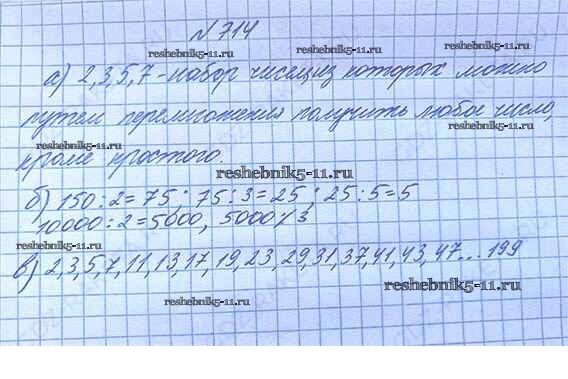 № 714
reshebnik5-11.ru reshebnik5-11.ru
а) 2,3,5,7 - набор чисел, из которых можно
путем перемножения получить любое число,
reshebnik5-11.ru
кроме простого.
reshebnik5-11.ru
б) 150:2=75; 75:3=25; 25:5=5
10000:2=5000, 5000/3
reshebnik5-11.ru reshebnik5-11.ru
в) 2,3,5,7,11,13,17,19,23,29,31,37,41,43,47...199
reshebnik5-11.ru
reshebnik5-11.ru